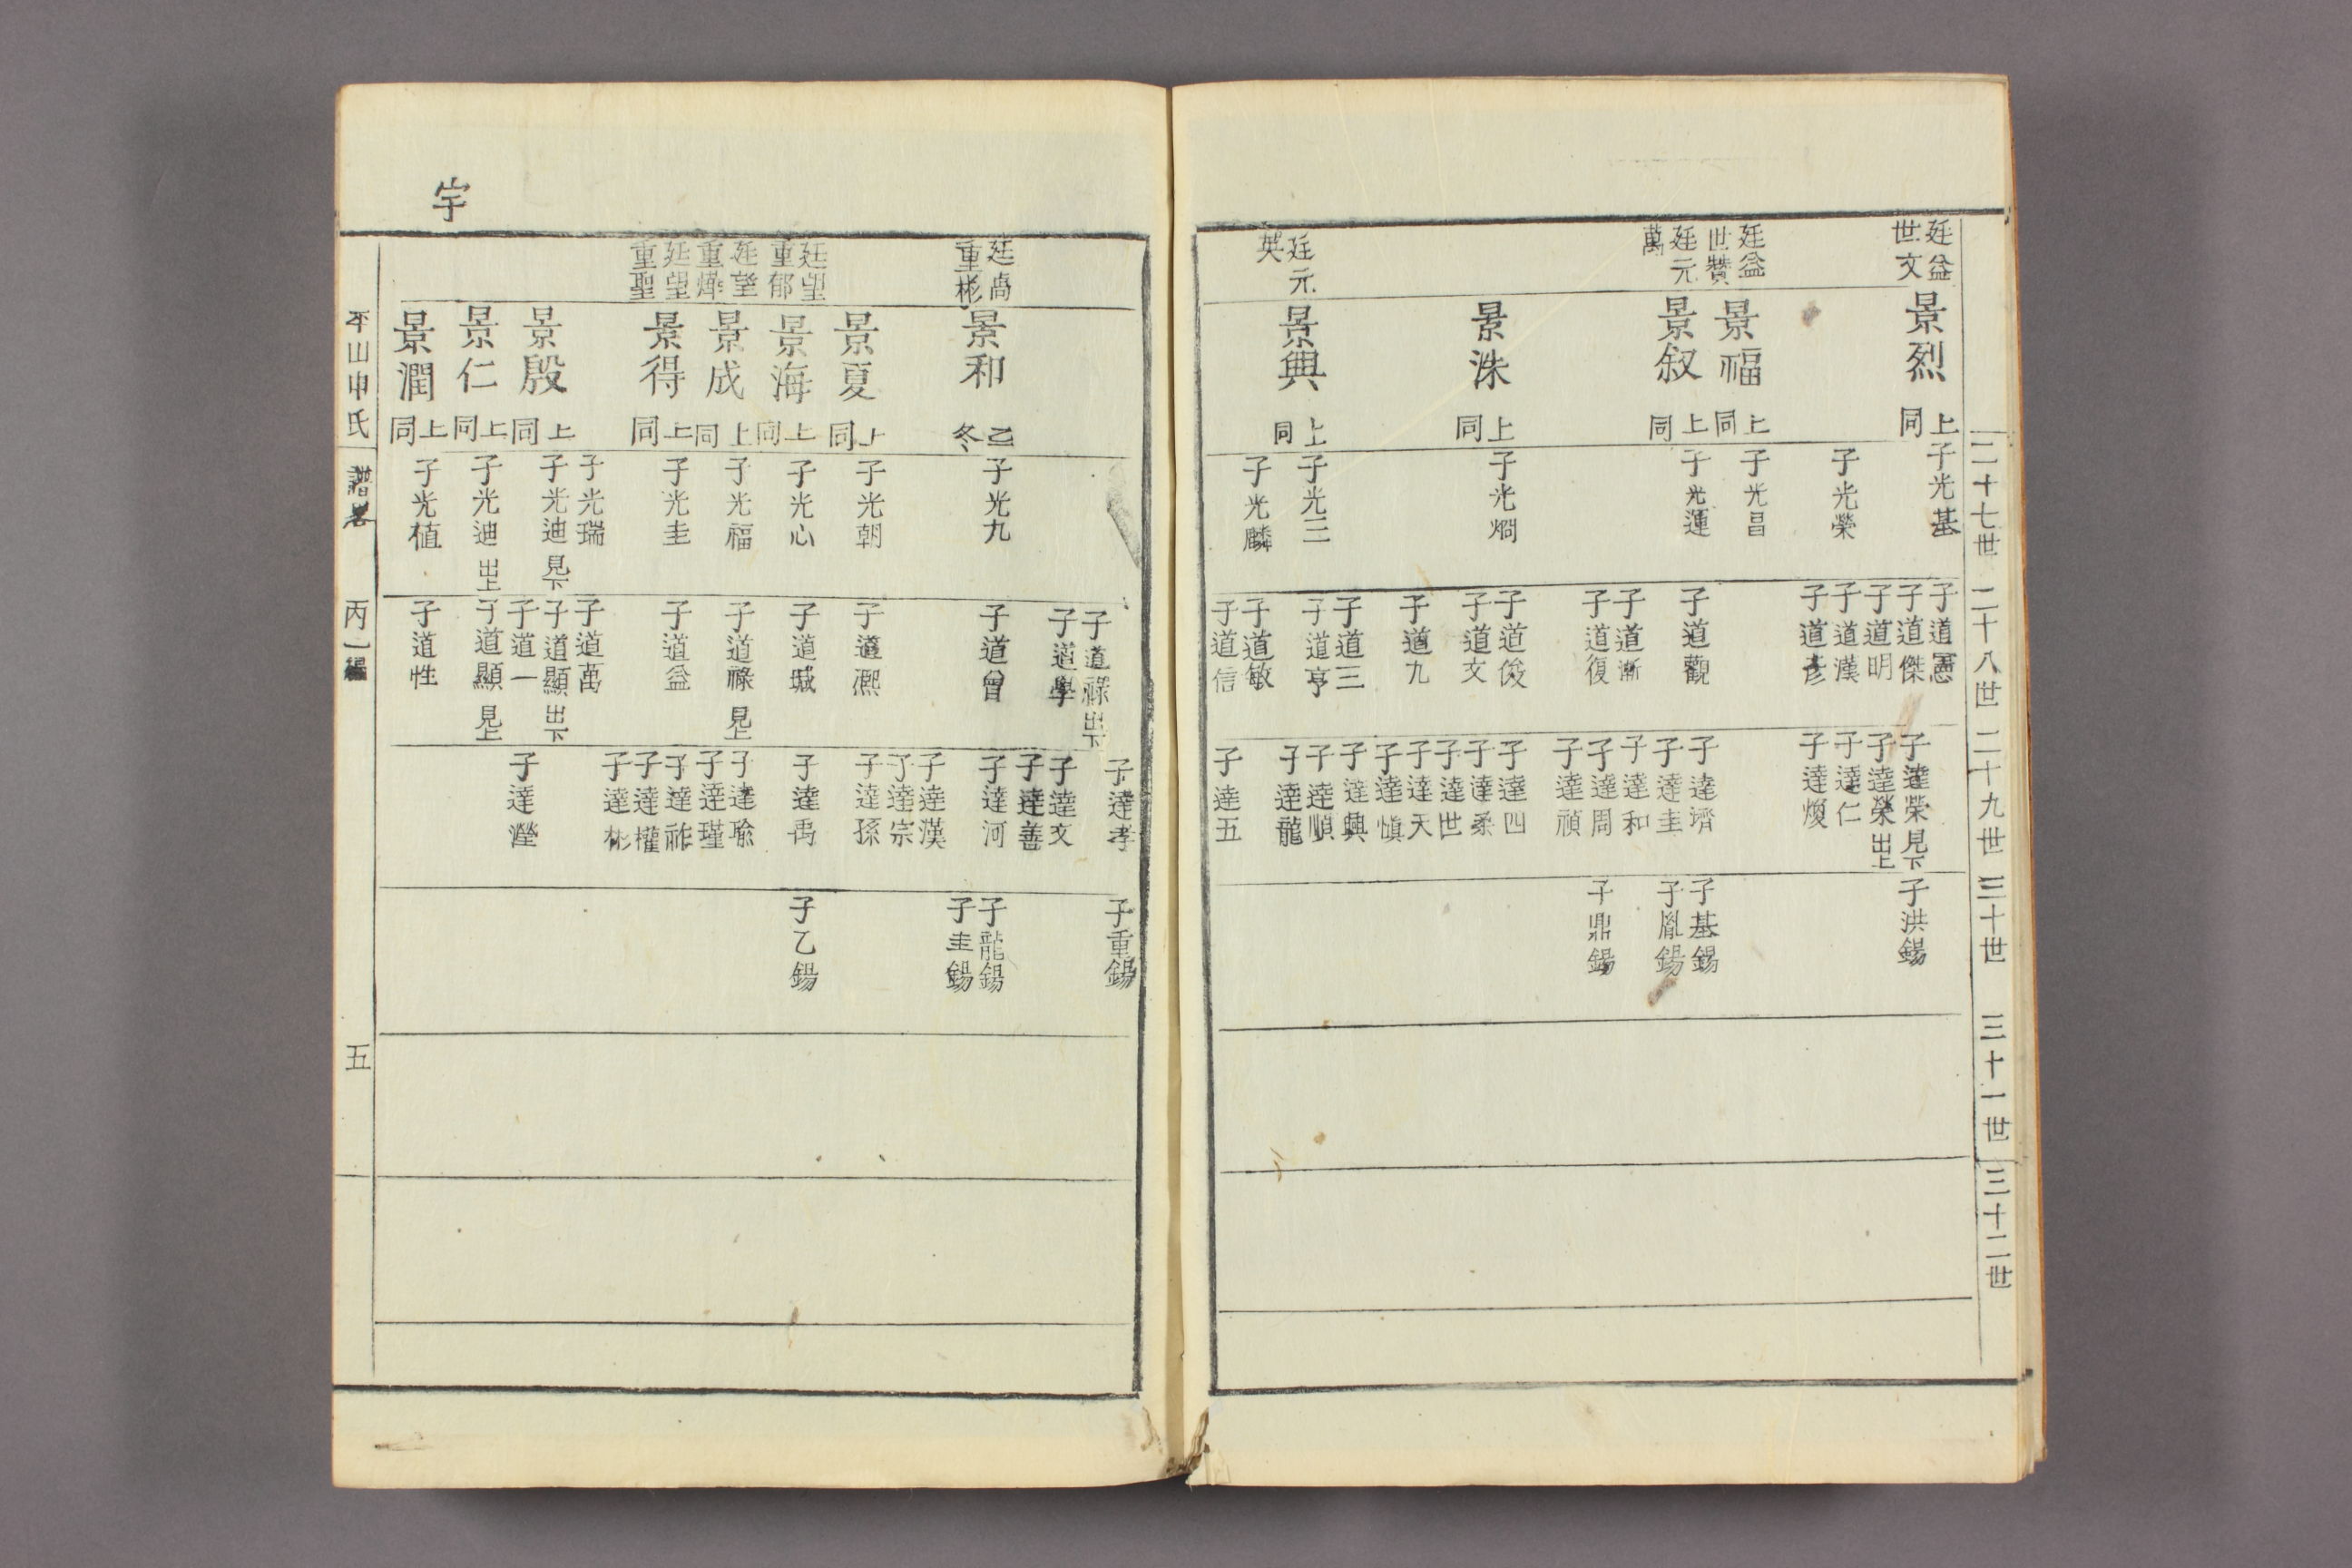 二十七世
二十八世
二十九世
三十世
三十一世
三十二世
廷益
世文
廷益
世贊
廷元
萬
廷元
英
景烈 上同
景福 上同
景叙 上同
景洙 上同
景興 上同
子光基
子光榮
子光昌
子光運
子光烱
子光三
子光麟
子道憲
子道傑
子道明
子道漢
子道彥
子道觀
子道漸
子道復
子道俊
子道文
子道九
子道三
子道亨
子道敏
子道信
子達榮 見下
子達榮 出上
子達仁
子達煥
子達濟
子達圭
子達和
子達周
子達禎
子達四
子達柔
子達世
子達天
子達愼
子達興
子達順
子達龍
子達五
子洪錫
子基錫
子胤錫
子鼎錫
宇
廷卨
重彬
廷望
重郁
廷望
重燁
廷望
重聖
景和 乙冬
景夏 上同
景海 上同
景成 上同
景得 上同
景殷 上同
景仁 上同
景潤 上同
子光九
子光朝
子光心
子光福
子光圭
子光瑞
子光迪 見下
子光迪 出上
子光植
子道祿 出下
子道學
子道曾
子道凞
子道城
子道祿 見上
子道益
子道萬
子道顯 出下
子道一
子道顯 見上
子道性
子達孝
子達文
子達善
子達河
子達漢
子達宗
子達孫
子達禹
子達瑜
子達瑾
子達祚
子達權
子達彬
子達瀅
子重錫
子龍錫
子圭錫
子乙錫
平山申氏
譜畧
丙一編
五